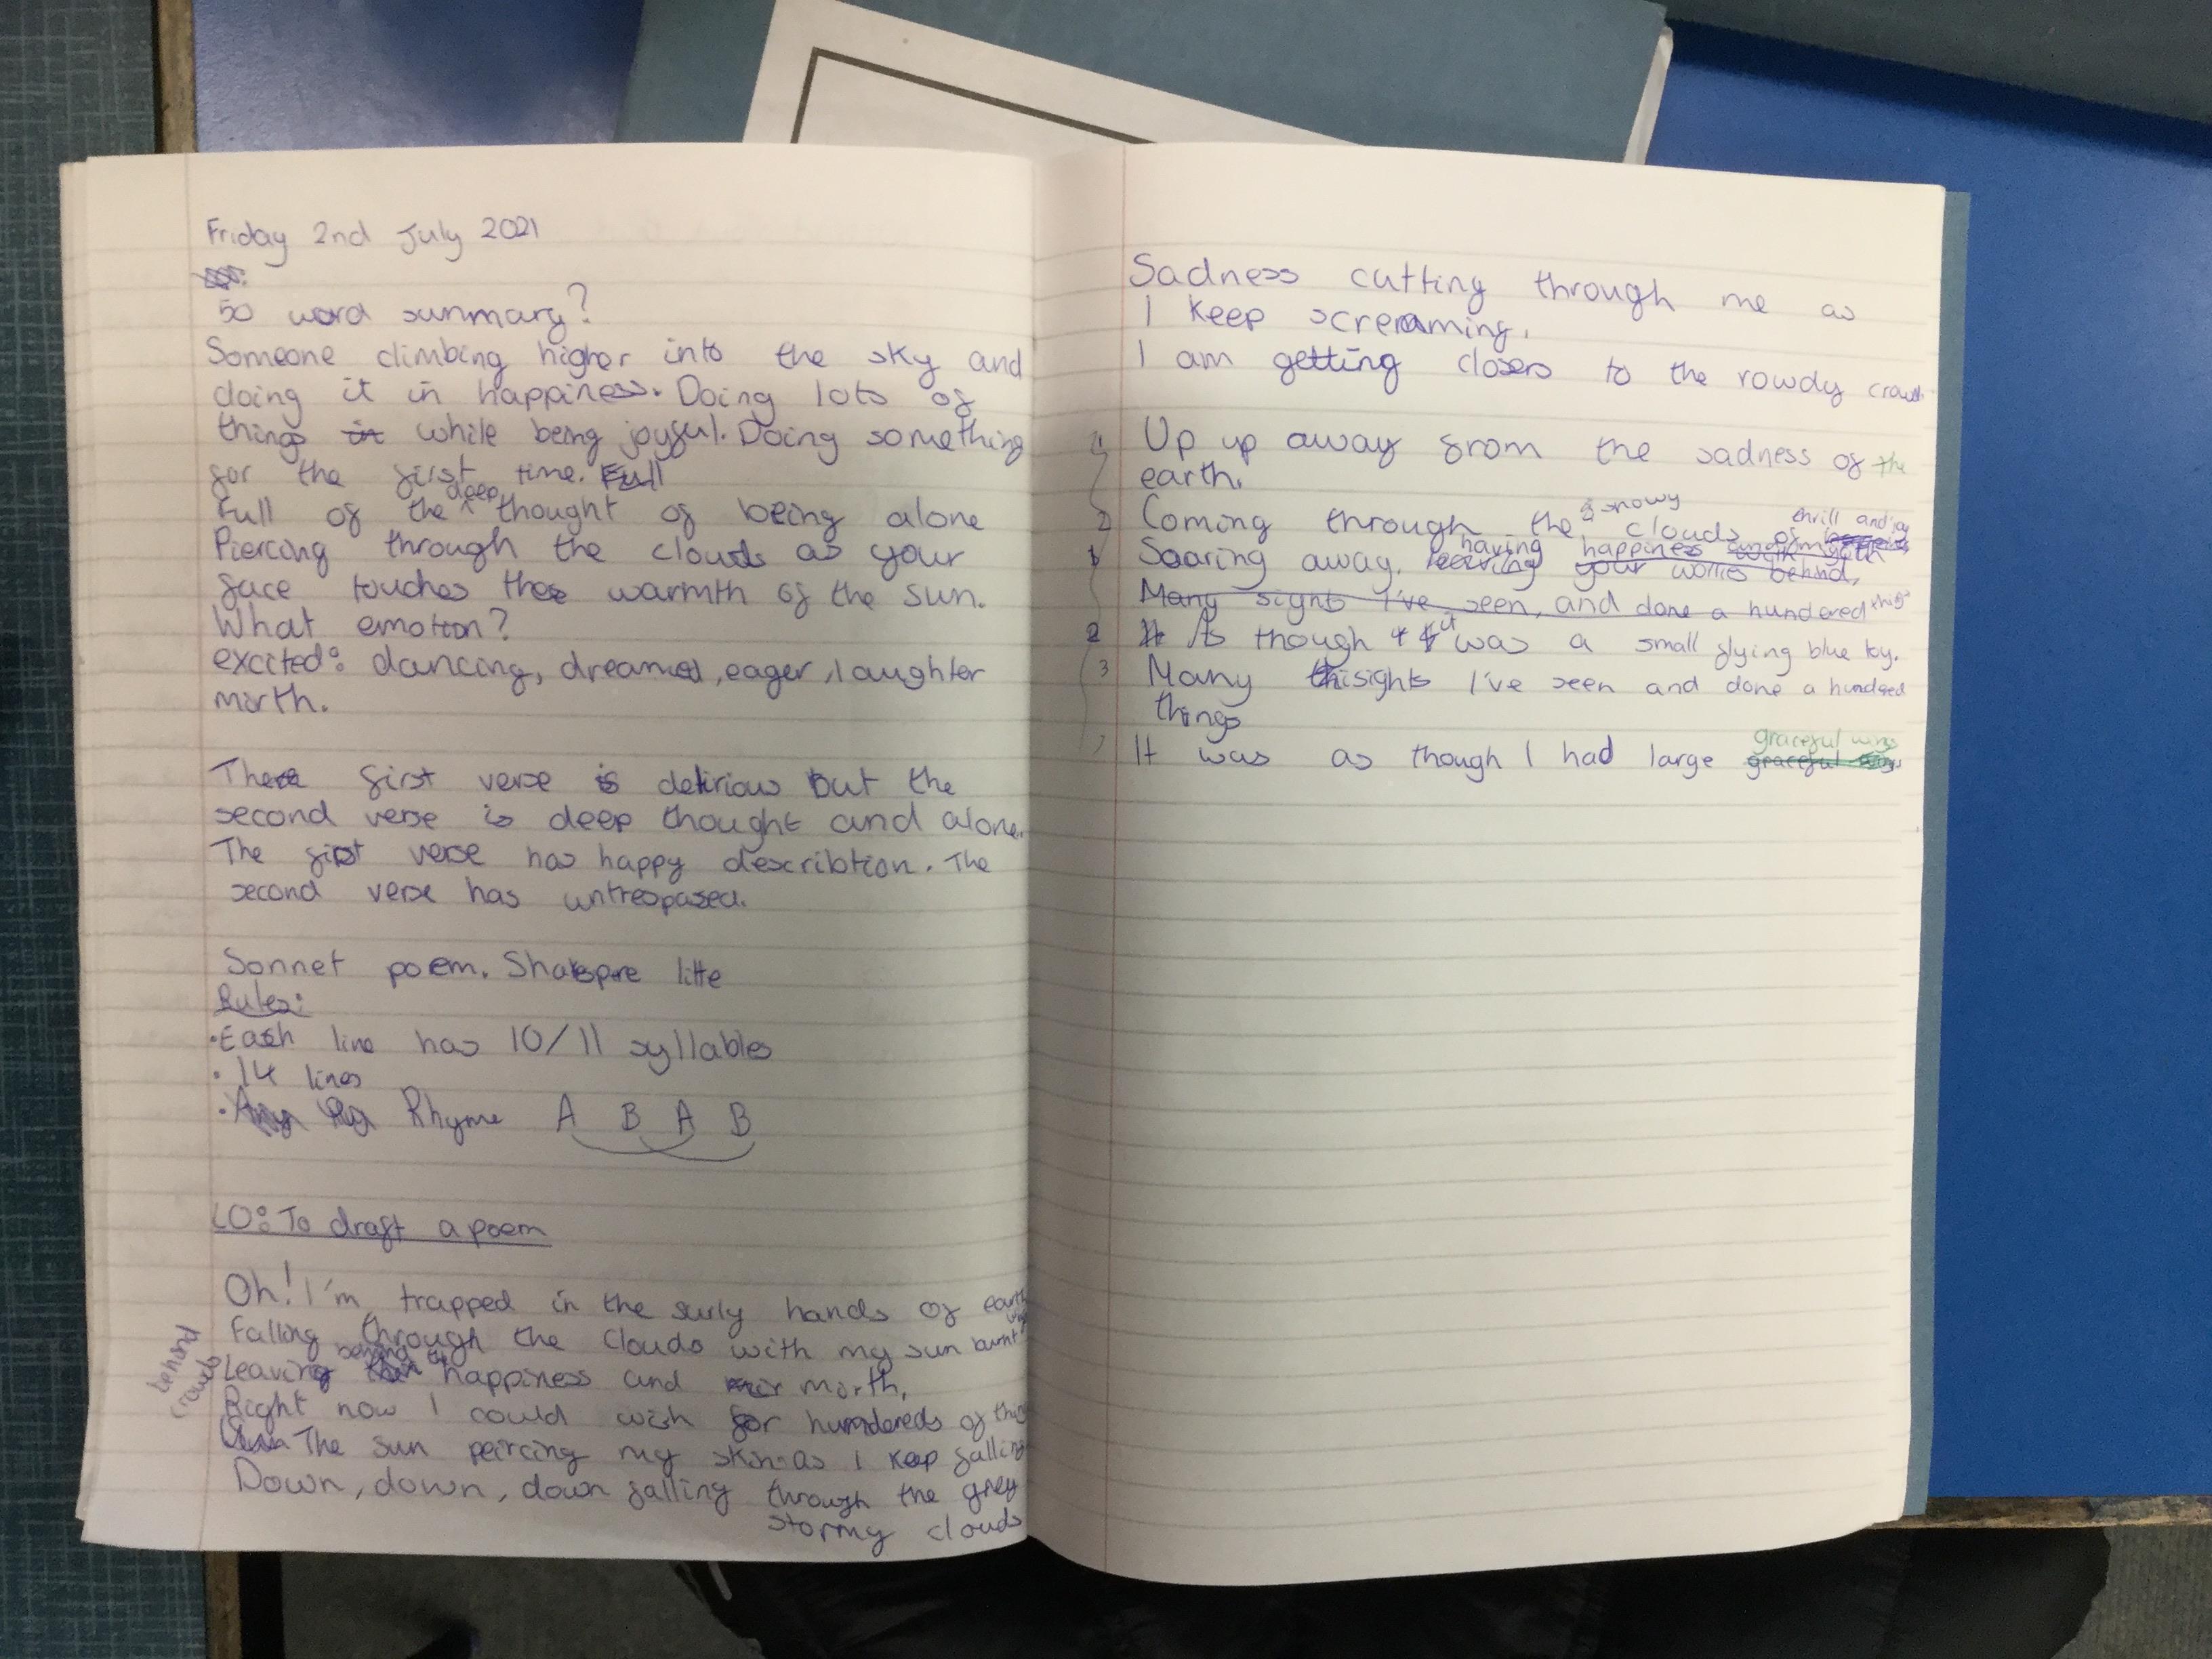 Friday 2nd July 2021
50 word summary?
Someone climbing higher into the sky and
doing it in happiness. Doing lots of
things in while being joyful. Doing something
for the first time. Full
deep
Full of the thought of being alone
Piercing through the clouds as your
face touches the warmth of the sun.
What emotion?
excited: dancing, dreamed, eager, laughter
mirth.
There first verse is delirious but the
second verse is deep thought and alone.
The first verse has happy describtion. The
second verse has untrespased.
Sonnet poem. Shakespere litte
Rules:
• Each line has 10/11 syllables
• 14 lines
• Rhyme A B A B
LO: To draft a poem
Oh! I'm trapped in the surly hands of earth
Falling through the clouds with my sun burnt
behind
crowds
behind
Leaving happiness and mirth,
Right now I could wish for hundereds of thing
The sun peircing my skin as I keep falling
Down, down, down falling through the grey
stormy clouds
Sadness cutting through me as
I keep screaming,
I am getting closer to the rowdy crowd
Up up away from the sadness of the
earth,
snowy
thrill and joy
2 Coming through the clouds of
having happiness
Soaring away, leaving your worries behind,
Many sights I've seen, and done a hundered things
it
2 As though was a small flying blue toy.
3 Many sights I've seen and done a hundred
things
graceful wings
It was as though I had large graceful wings